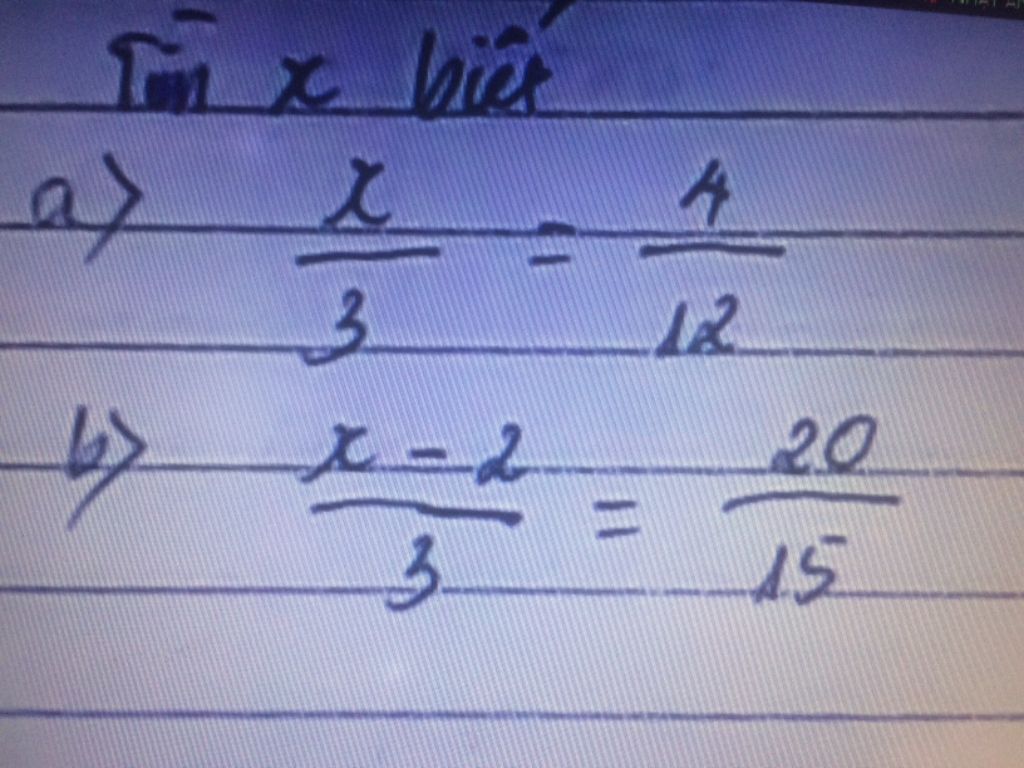 Tìm x biết
a) x/3 = 4/12
b) x - 2/3 = 20/15